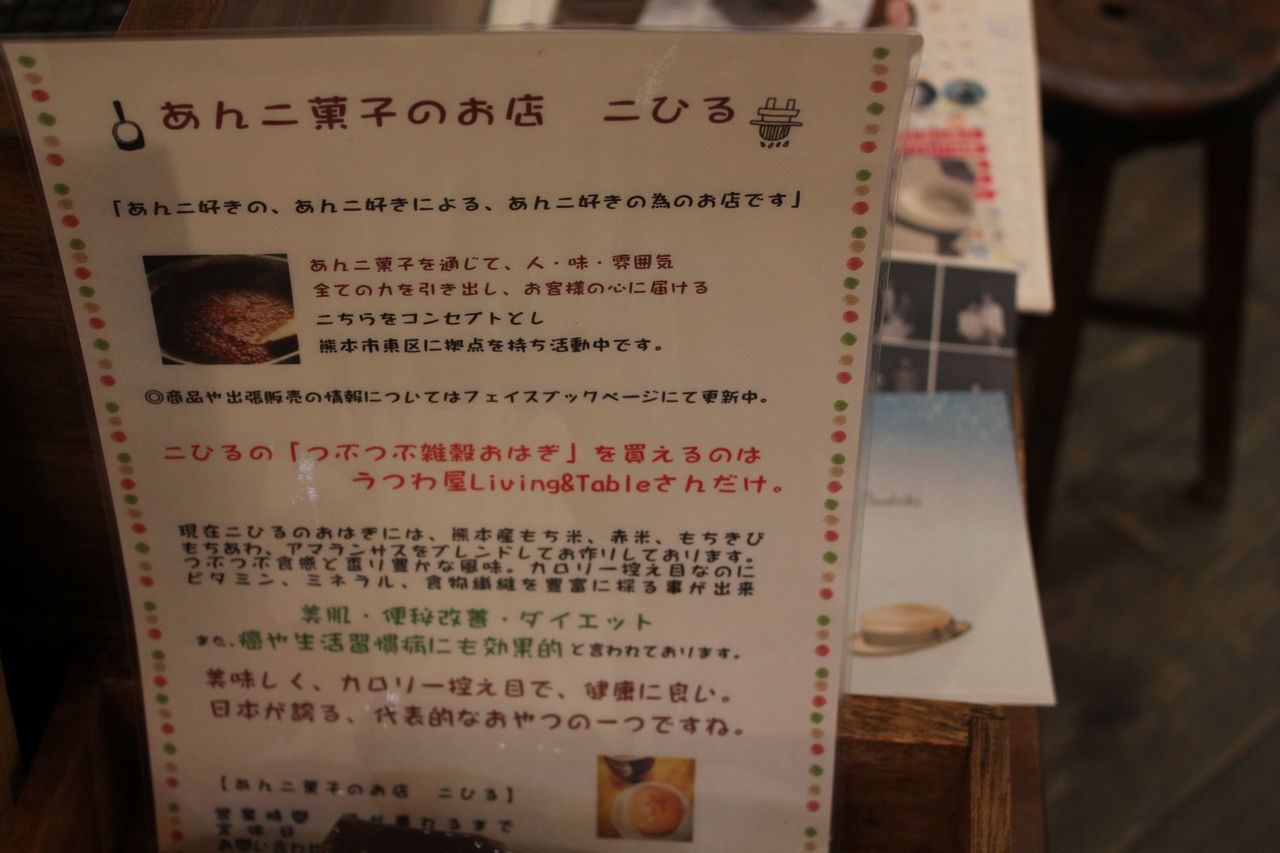 あんこ菓子のお店 こひる
「あんこ好きの、あんこ好きによる、あんこ好きの為のお店です」
あんこ菓子を通じて、人・味・雰囲気
全ての力を引き出し、お客様の心に届ける
こちらをコンセプトとし
熊本市東区に拠点を持ち活動中です。
◎商品や出張販売の情報についてはフェイスブックページにて更新中。
こひるの「つぶつぶ雑穀おはぎ」を買えるのは
うつわ屋Living&Tableさんだけ。
現在こひるのおはぎには、熊本産もち米、赤米、もちきび
もちあわ、アマランサスをブレンドしてお作りしております。
つぶつぶ食感と香り豊かな風味。カロリー控え目なのに
ビタミン、ミネラル、食物繊維を豊富に採る事が出来
美肌・便秘改善・ダイエット
また、癌や生活習慣病にも効果的と言われております。
美味しく、カロリー控え目で、健康に良い。
日本が誇る、代表的なおやつの一つですね。
【あんこ菓子のお店 こひる】
営業時間 が暮れるまで
定休日
お問い合わせ